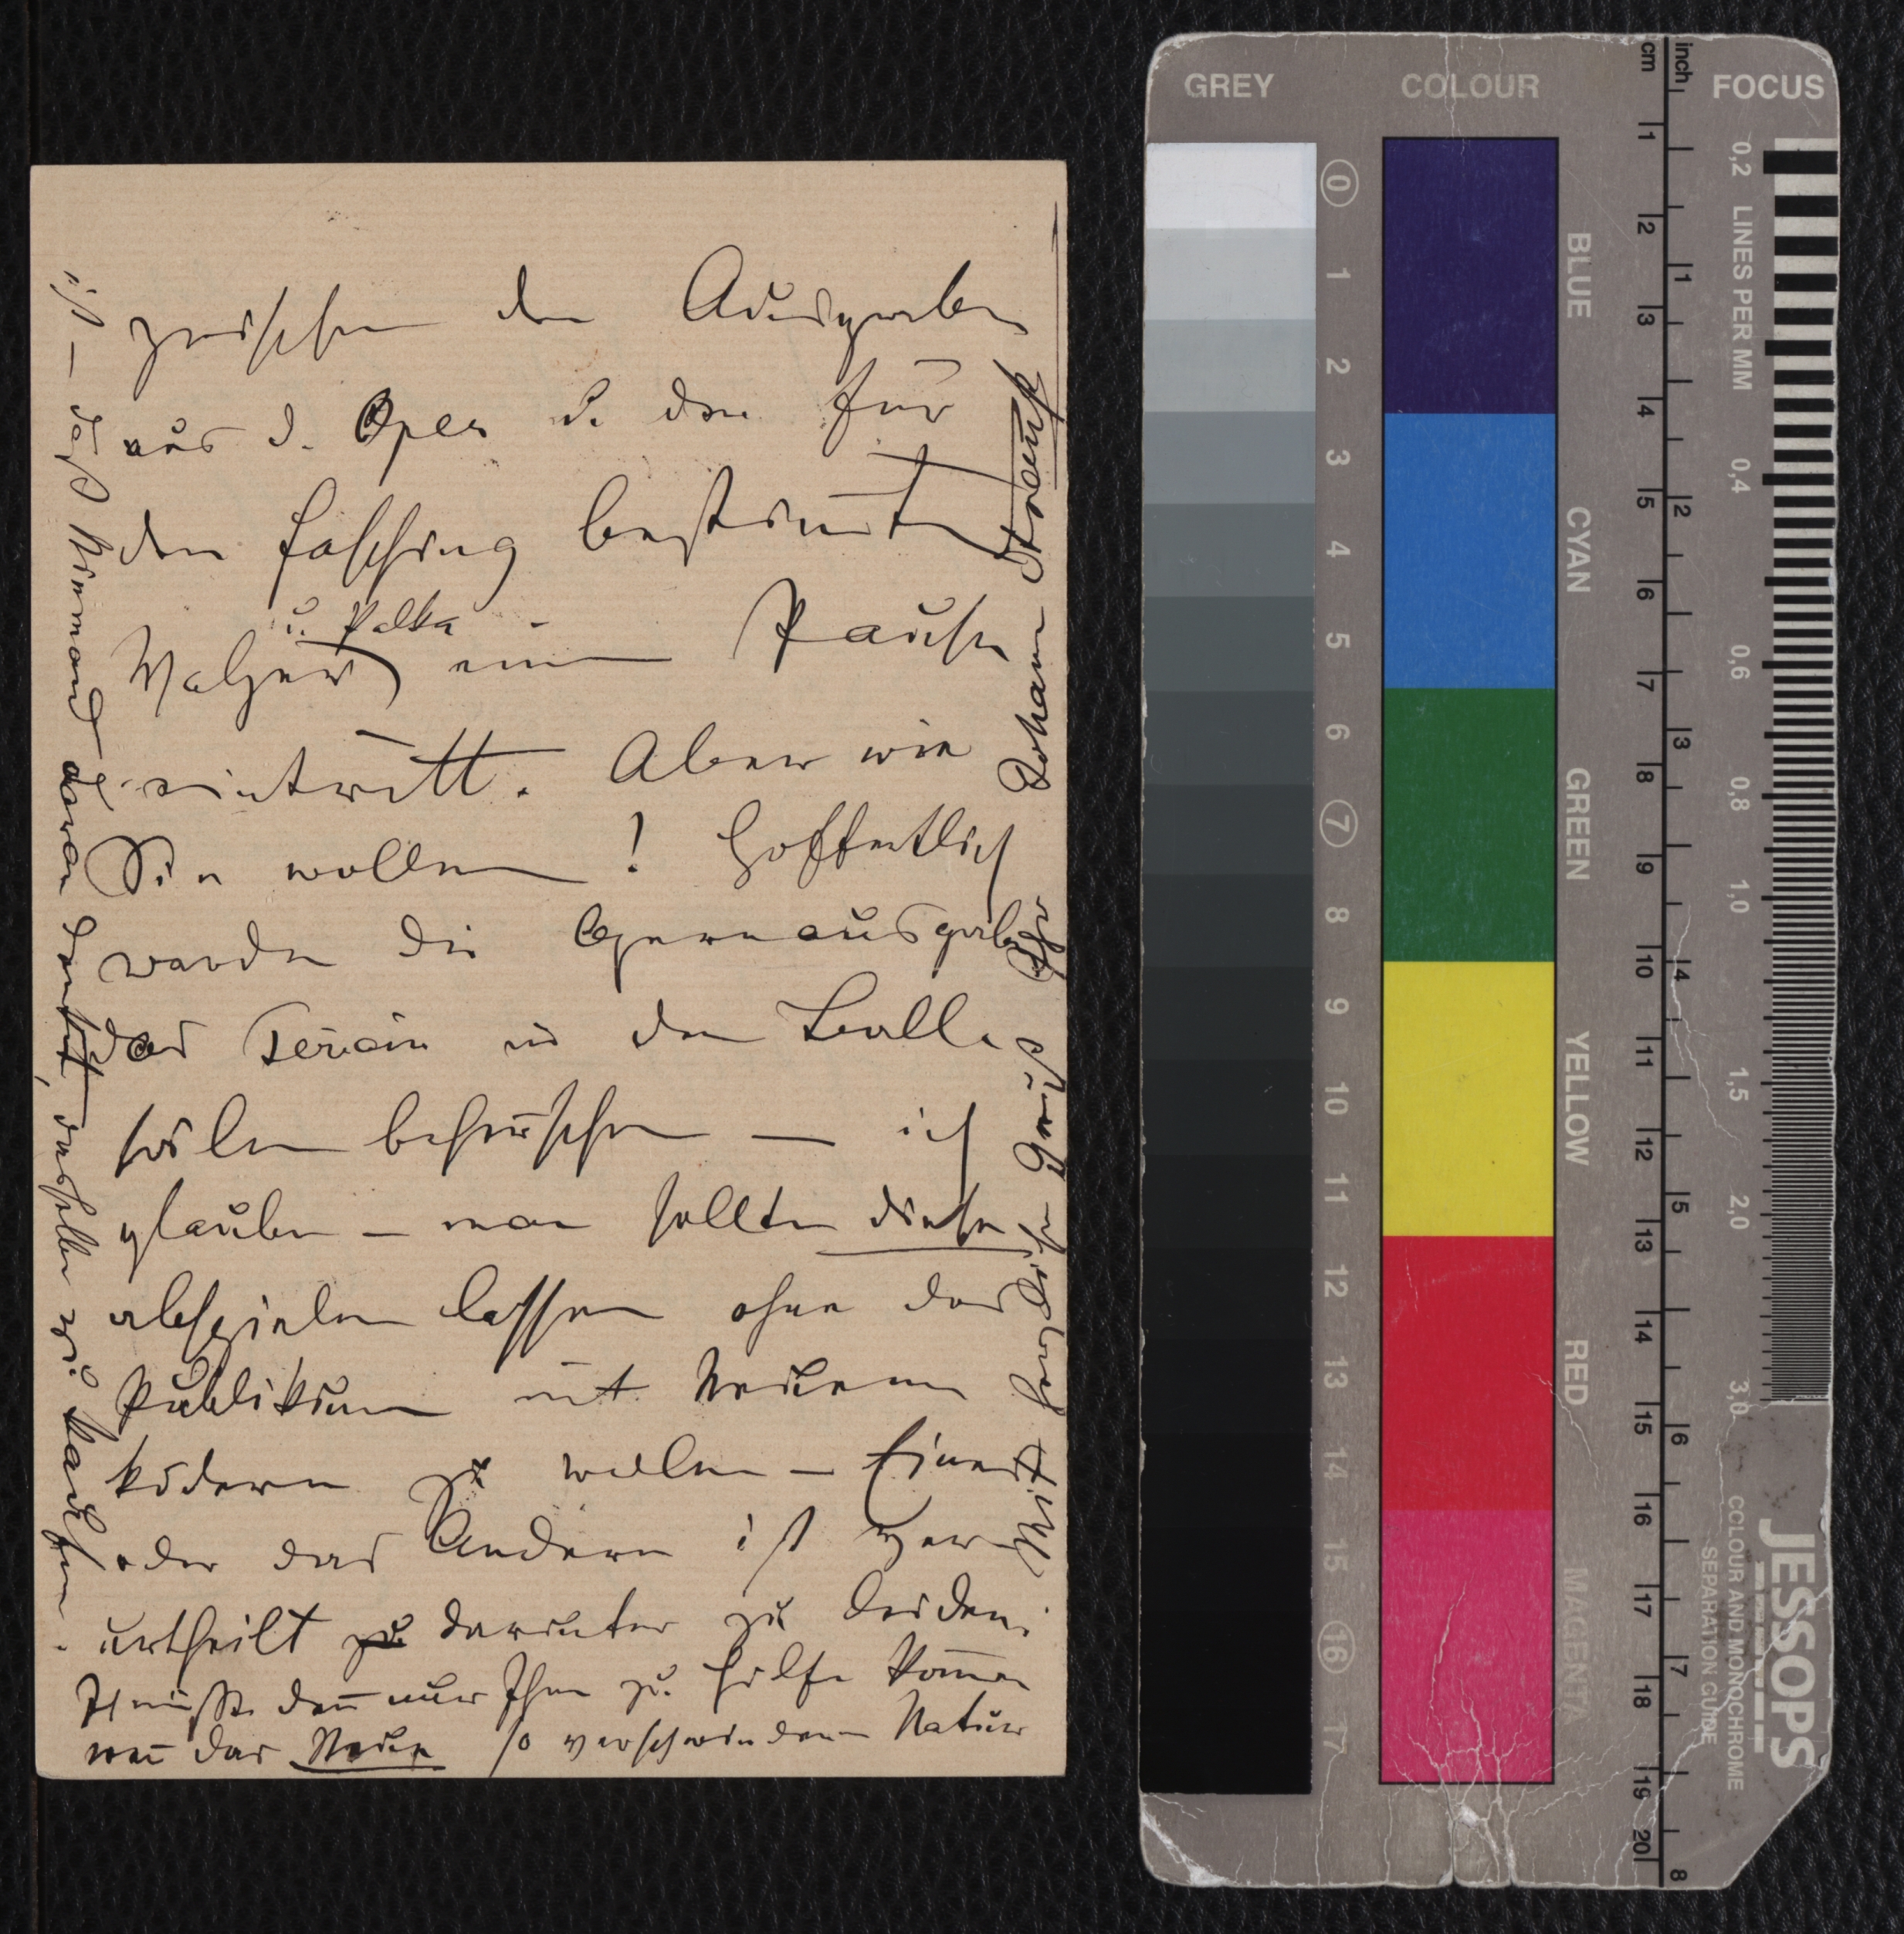 zwischen den Ausgaben
aus d. Oper u. den für
den Fasching bestimt
u. Polka
Walzer) eine Pause
eintritt. Aber wie
Sie wollen! Hoffentlich
werden die Opernausgaben
das Terrain in den Ball
sälen beherschen — ich
glaube — man sollte diese
abspielen lassen ohne das
Publikum mit Neuem
ködern zu wollen — Eines
oder das Andere ist ver
urtheilt darunter zu leiden.
müßte den nur Ihm zu Hilfe komen
wen das Neue so verschwindener Natur
ist — daß Niemand daran denkt, dasselbe zu kaufen.
Mit herzlichen Gruß Ihr
Johann Strauß
GREY
COLOUR
FOCUS
cm
inch
0 1 2 3 4 5 6 7 8 9 10 11 12 13 14 15 16 17
BLUE
CYAN
GREEN
YELLOW
RED
MAGENTA
1 2 3 4 5 6 7 8 9 10 11 12 13 14 15 16 17 18 19 20
1 2 3 4 5 6 7 8
0,2 LINES PER MM 0,4 0,6 0,8 1,0 1,5 2,0 3,0
JESSOPS
COLOUR AND MONOCHROME
SEPARATION GUIDE